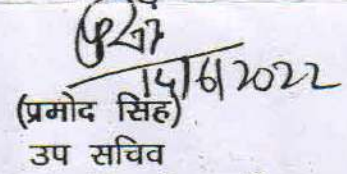 15/6/2022
(प्रमोद सिंह)
उप सचिव